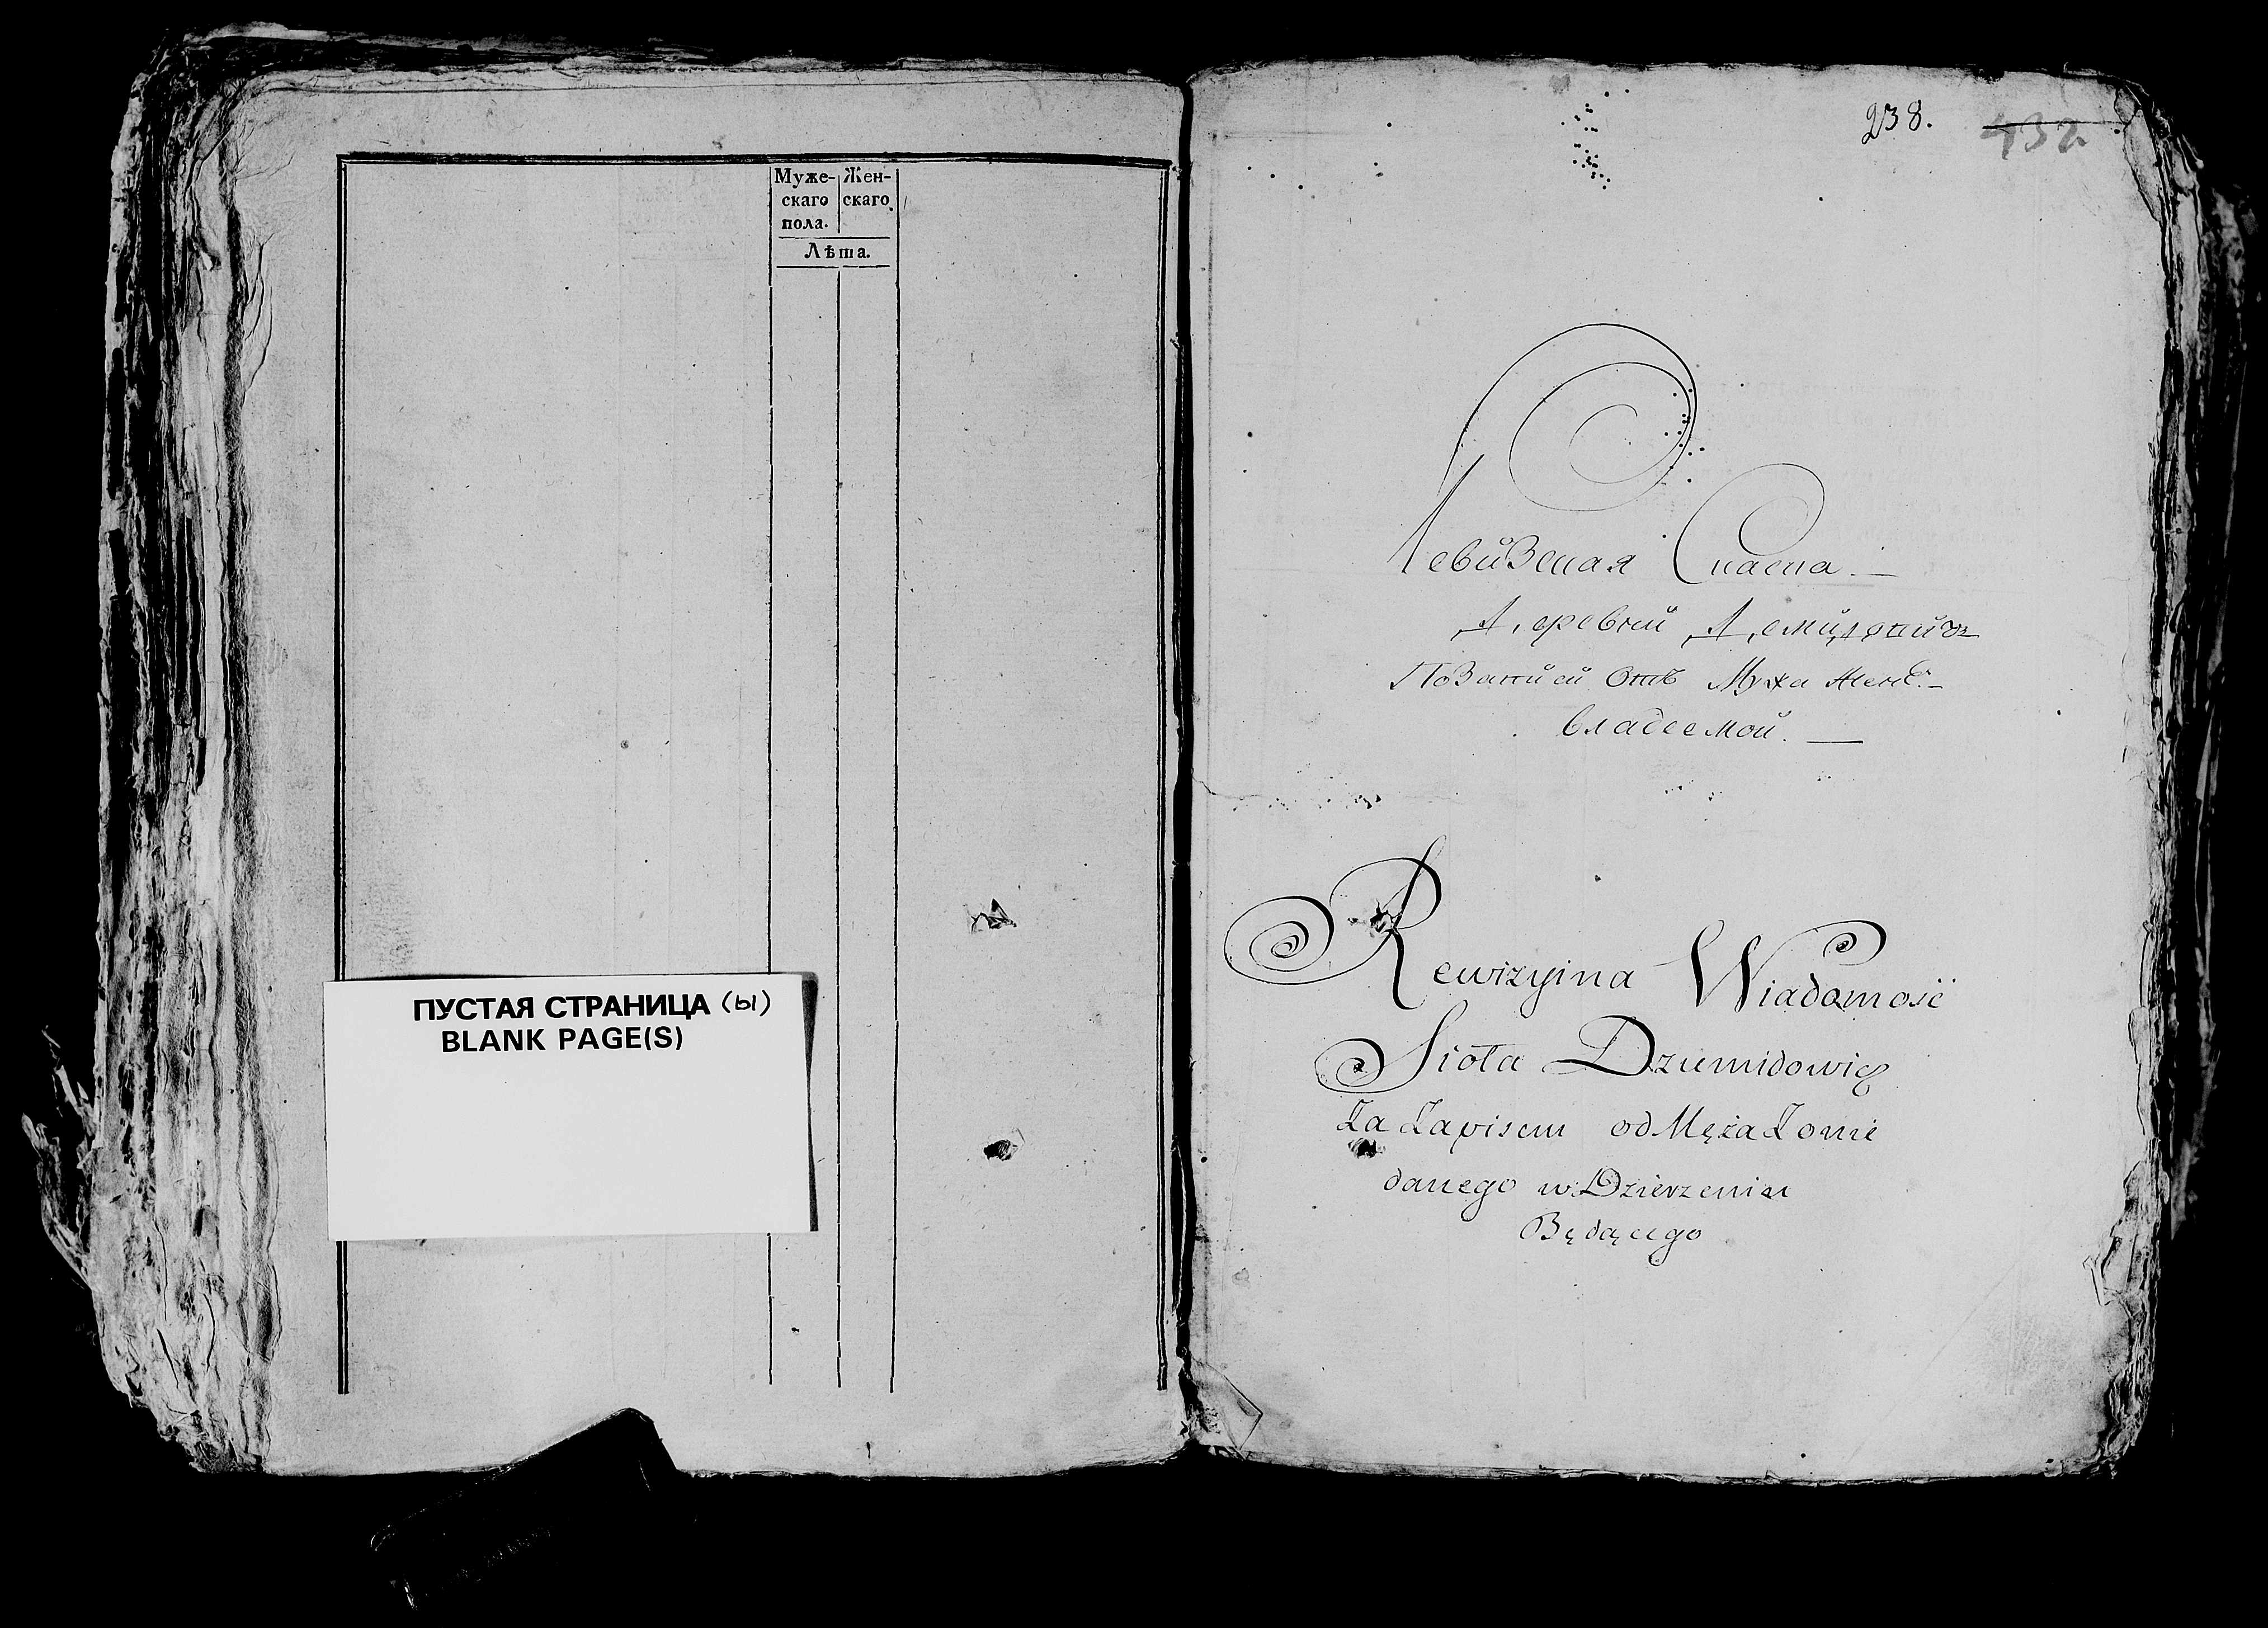 Муже- Жен-
скаго скаго
пола.
Лѣта.
ПУСТАЯ СТРАНИЦА (Ы)
BLANK PAGE(S)
238.
432
Ревизская Сказка.
Деревни Демидовичъ
По Записи отъ Мужа Женѣ
владеемой.
Rewizyina Wiadomość
Sioła Dziemidowicz
Za Zapisem od Męża Zonie
danego w Dzierzeniu
Będącego